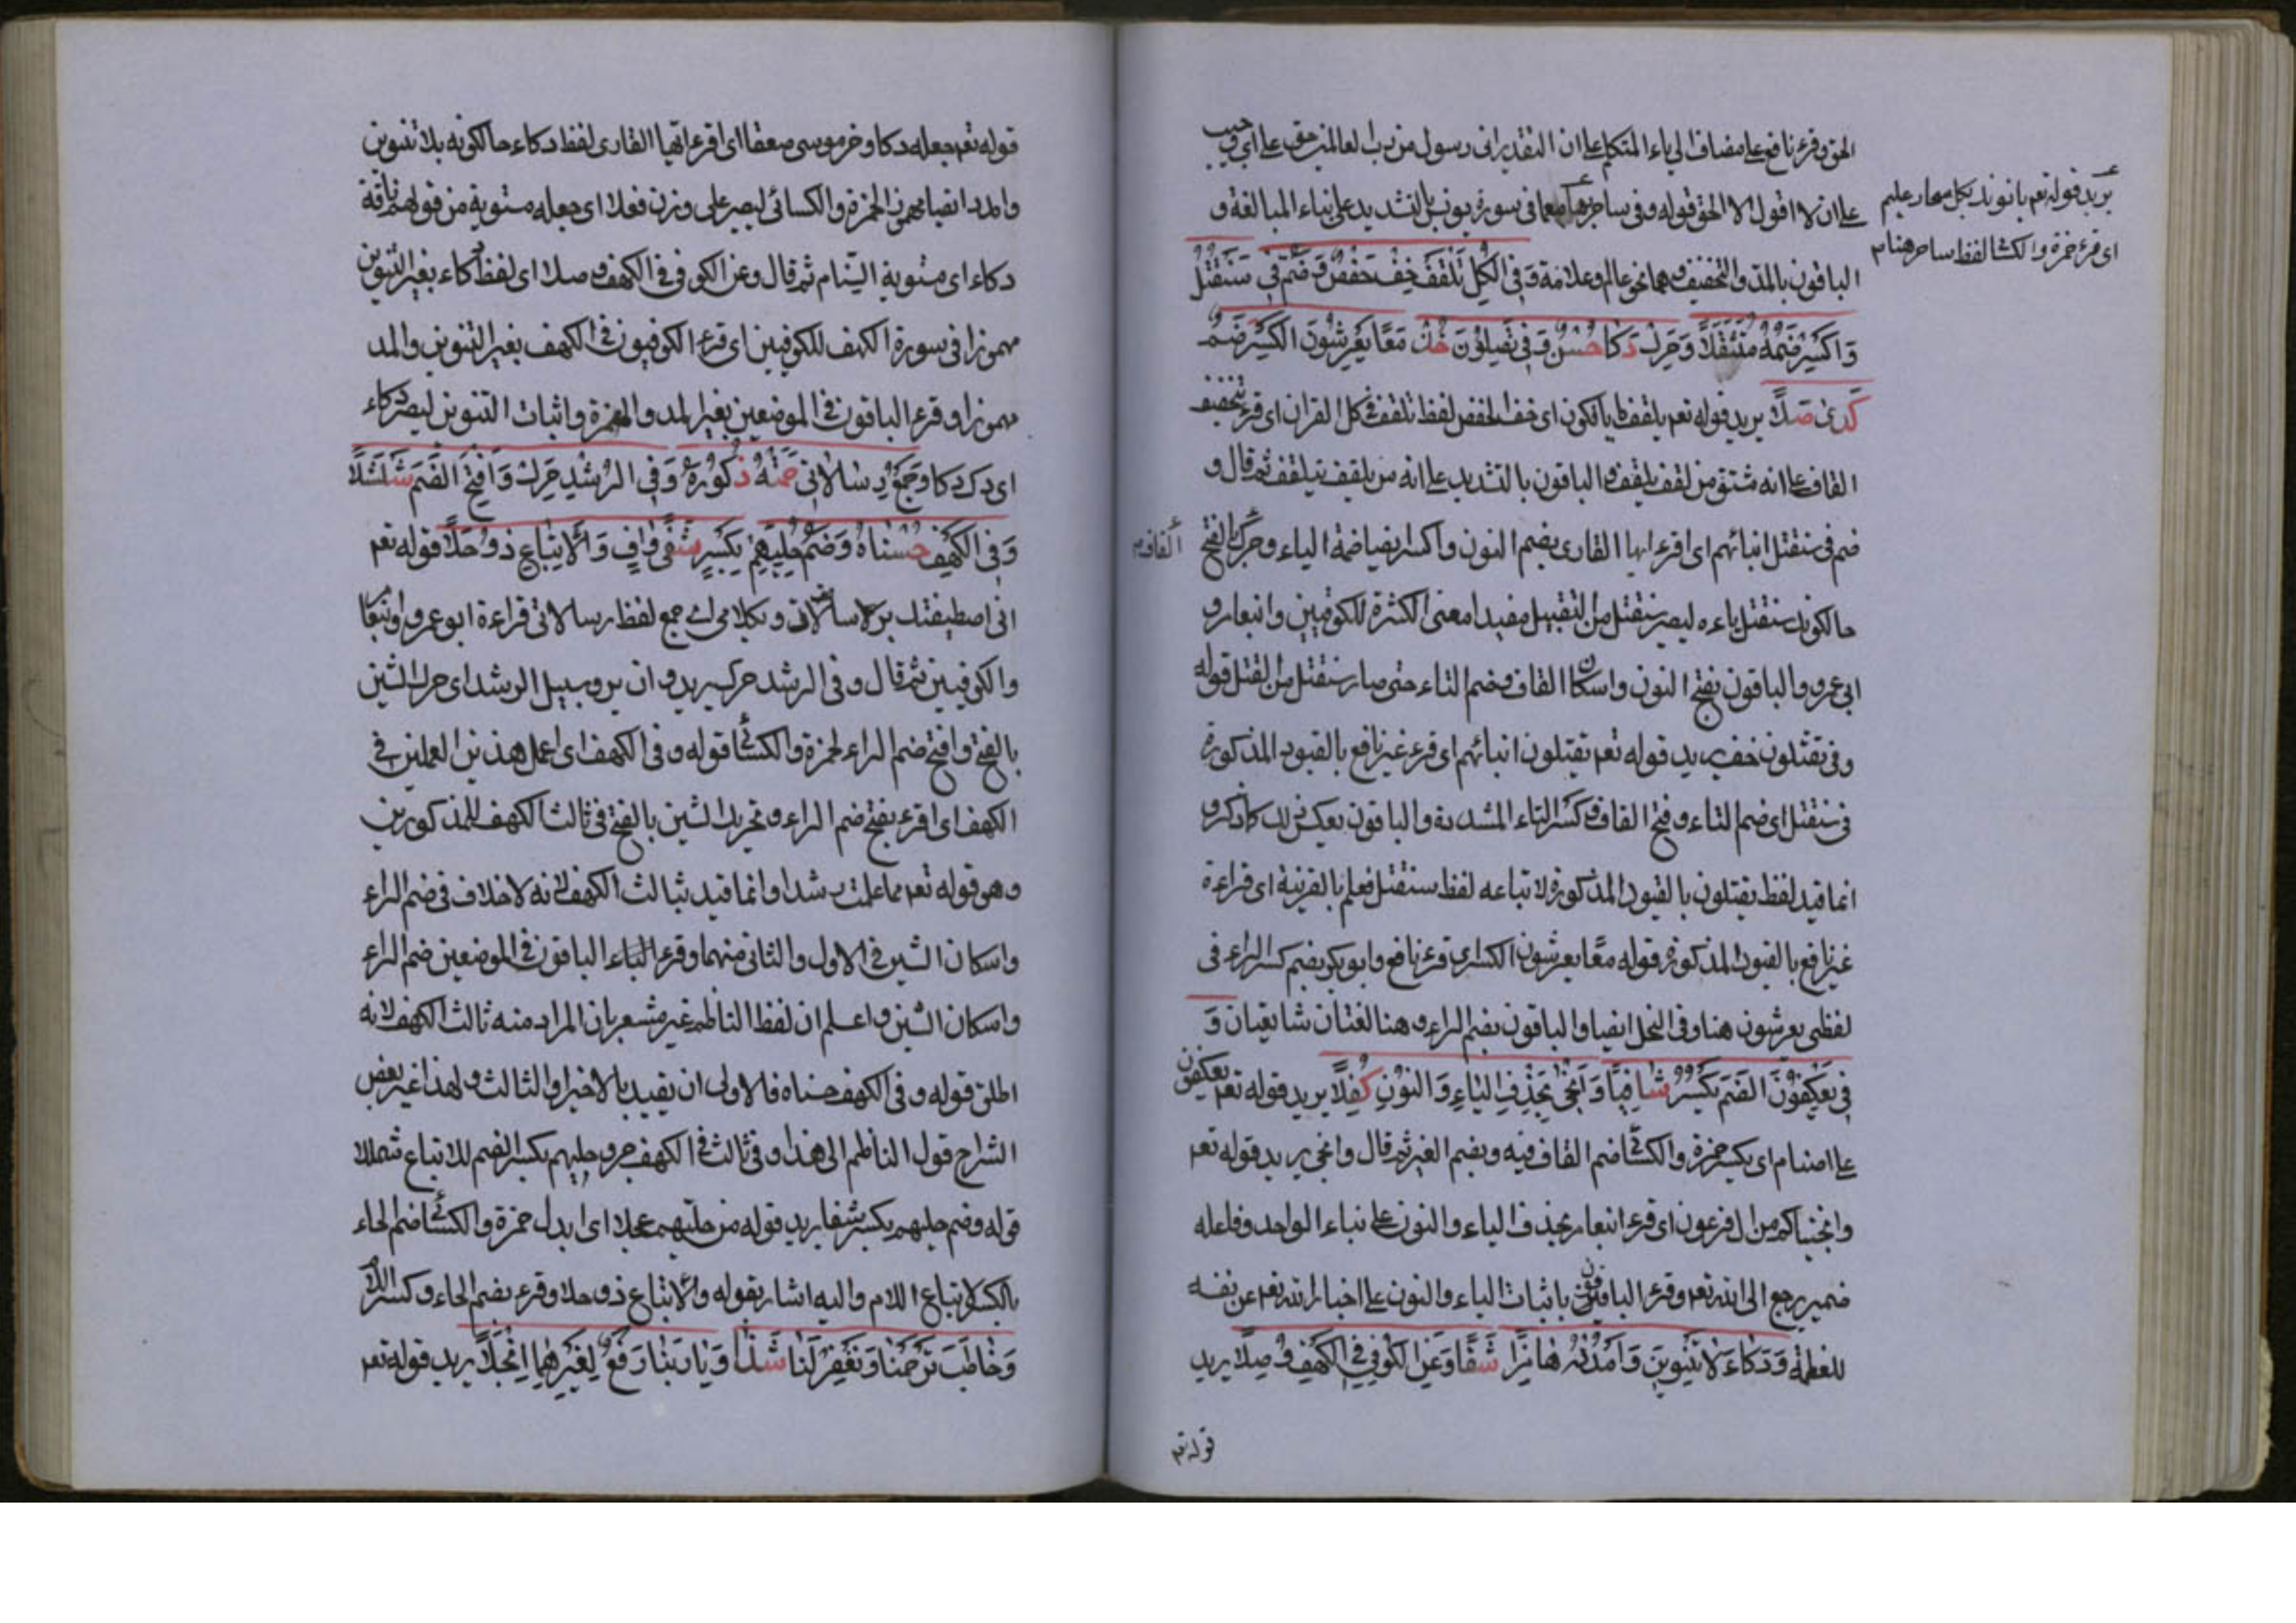 الحق وقرء نافع على مضاف الى ياء المتكلم على ان التقدير انى رسول من رب العالمين حقيق على اى وجب
على ان لا اقول الا الحق قوله وفى ساحر هنا معا فى سورة يونس بالتشديد على بناء المبالغة و
يريد قوله تعم ياتوك بكل سحار عليم
اى قرء حمزة والكسا لفظ ساحر هنا
الباقون بالمد والتخفيف وهما نحو عالم وعلامة وَفِى الكُلِّ تَلْقَفْ خِفُّ حَفْصٍ وَضُمَّ فِى سَنَقْتُلُ
وَاكْسِرْ ضَمَّهُ مُتَثَقِّلًا وَحَرِّكْ ذَكَا حُسْنٍ وَفِى يَقْتُلُوْنَ خُذْ مَعًا يَعْرِشُوْنَ الكَسْرُ ضُمَّ
كَذِى صَلًا يريد قوله تعم تلقف ما يأفكون اى خف لحفص لفظ تلقف فى كل القران اى قرء بتخفيف
القاف على انه مشتق من لقف يلقف والباقون بالتشديد على انه من تلقف يتلقف ثم قال و
ضم فى سنقتل ابنائهم اى اقرء ايها القارى بضم النون واكسر ايضا ضمة التاء وحرك بالفتح
القاف
حالكونك سنقتل تاءه ليصير سنقتل من التقتيل مفيدا معنى الكثرة للكوفيين وابن عامر و
ابى عمرو والباقون بفتح النون واسكان القاف وضم التاء حتى صار سنقتل من القتل قوله
وفى يقتلون خف يريد قوله تعم يقتلون ابنائهم اى قرء غير نافع بالقيود المذكورة
فى سنقتل اى ضم التاء وفتح القاف وكسر التاء المشددة والباقون بعكس ذلك كما ذكر و
انما قيد لفظ يقتلون بالقيود المذكورة لاتباعه لفظ سنقتل فعلم بالقرينة اى قراءة
غير نافع بالقيود المذكورة قوله معًا يعرشون الكسر اى قرء نافع وابو بكر بضم كسر الراء فى
لفظى يعرشون هنا وفى النحل ايضا والباقون بضم الراء وهنا لغتان شايعتان وَ
فِى يَعْكِفُوْنَ الضَّمُّ يُكْسَرُ شَافِيًا وَاَنْجَى بِحَذْفِ اليَاءِ وَالنُوْنِ كُفِّلًا يريد قوله تعم يعكفون
على اصنام اى يكسر حمزة والكسائى ضم القاف فيه وبضم الغير ثم قال وانجى يريد قوله تعم
وانجيناكم من ال فرعون اى قرء ابن عامر بحذف الياء والنون على بناء الواحد وفاعله
ضمير يرجع الى الله تعم وقرء الباقون باثبات الياء والنون على اخبار الله تعم عن نفسه
للعظمة وَدَكَّاءَ لَا تَنْوِيْنَ وَامْدُدْهُ هَامِزًا شَفَا وَعَنِ الكُوْفِى فِى الكَهْفِ وُصِّلَا يريد
قوله تعم
قوله تعم جعله دكا وخر موسى صعقا اى اقرء ايها القارى لفظ دكاء حالكونه بلا تنوين
وامدد ايضا مهموز الحمزة والكسائى ليصير على وزن فعلاء اى جعله مستوية من قولهم ناقة
دكاء اى مستوية السنام ثم قال وعن الكوفى فى الكهف وصلا اى لفظ دكاء بغير التنوين
مهموزا فى سورة الكهف للكوفيين اى قرء الكوفيون فى الكهف بغير التنوين والمد
مهموزا وقرء الباقون فى الموضعين بغير المد والهمزة واثبات التنوين ليصير دكاء
اى دك دكا وَجَمْعُ رِسَالَاتِى حَمَتْهُ ذُكُوْرُهُ وَفِى الرُشْدِ حَرِّكْ وَافْتَحِ الضَّمَّ شُلْشُلًا
وَفِى الكَهْفِ حُسْنَاهُ وَضَمُّ حُلِيِّهِمْ بِكَسْرٍ شَفَى وَافٍ وَالْاِتْبَاعُ ذُوْ حَلًا قوله تعم
انى اصطفيتك برسالاتى وبكلامى اى جمع لفظ رسالاتى قراءة ابو عمرو
والكوفيين ثم قال وفى الرشد حرك يريد وان يروا سبيل الرشد اى حرك الشين
بالفتح وافتح ضم الراء لحمزة والكسائى قوله وفى الكهف اى اعمل هذين العملين فى
الكهف اى اقرء بفتح ضم الراء وتحريك الشين بالفتح فى ثالث الكهف للمذكورين
وهو قوله تعم مما علمت رشدا وانما قيد بثالث الكهف لانه لا خلاف فى ضم الراء
واسكان الشين فى الاول والثانى منهما وقرء الباقون فى الموضعين ضم الراء
واسكان الشين واعلم ان لفظ الناظم غير مشعر بان المراد منه ثالث الكهف لانه
اطلق قوله وفى الكهف حسناه فالاولى ان يقيد بالاخير او الثالث ولهذا غير بعض
الشراح قول الناظم الى هذا وفى ثالث فى الكهف حز وحليهم بكسر الضم للاتباع شمللا
قوله وضم حليهم بكسر شفا يريد قوله من حليهم عجلا اى ابدل حمزة والكسائى ضم الحاء
بالكسر لاتباع اللام واليه اشار بقوله والاتباع ذو حلا وقرء بضم الحاء وكسر اللام
وَخَاطَبَ تَرْحَمْنَا وَتَغْفِرْ لَنَا شَذًا وَبَا رَبَّنَا رَفْعٌ لِغَيْرِهِمَا انْجَلَا يريد قوله تعم